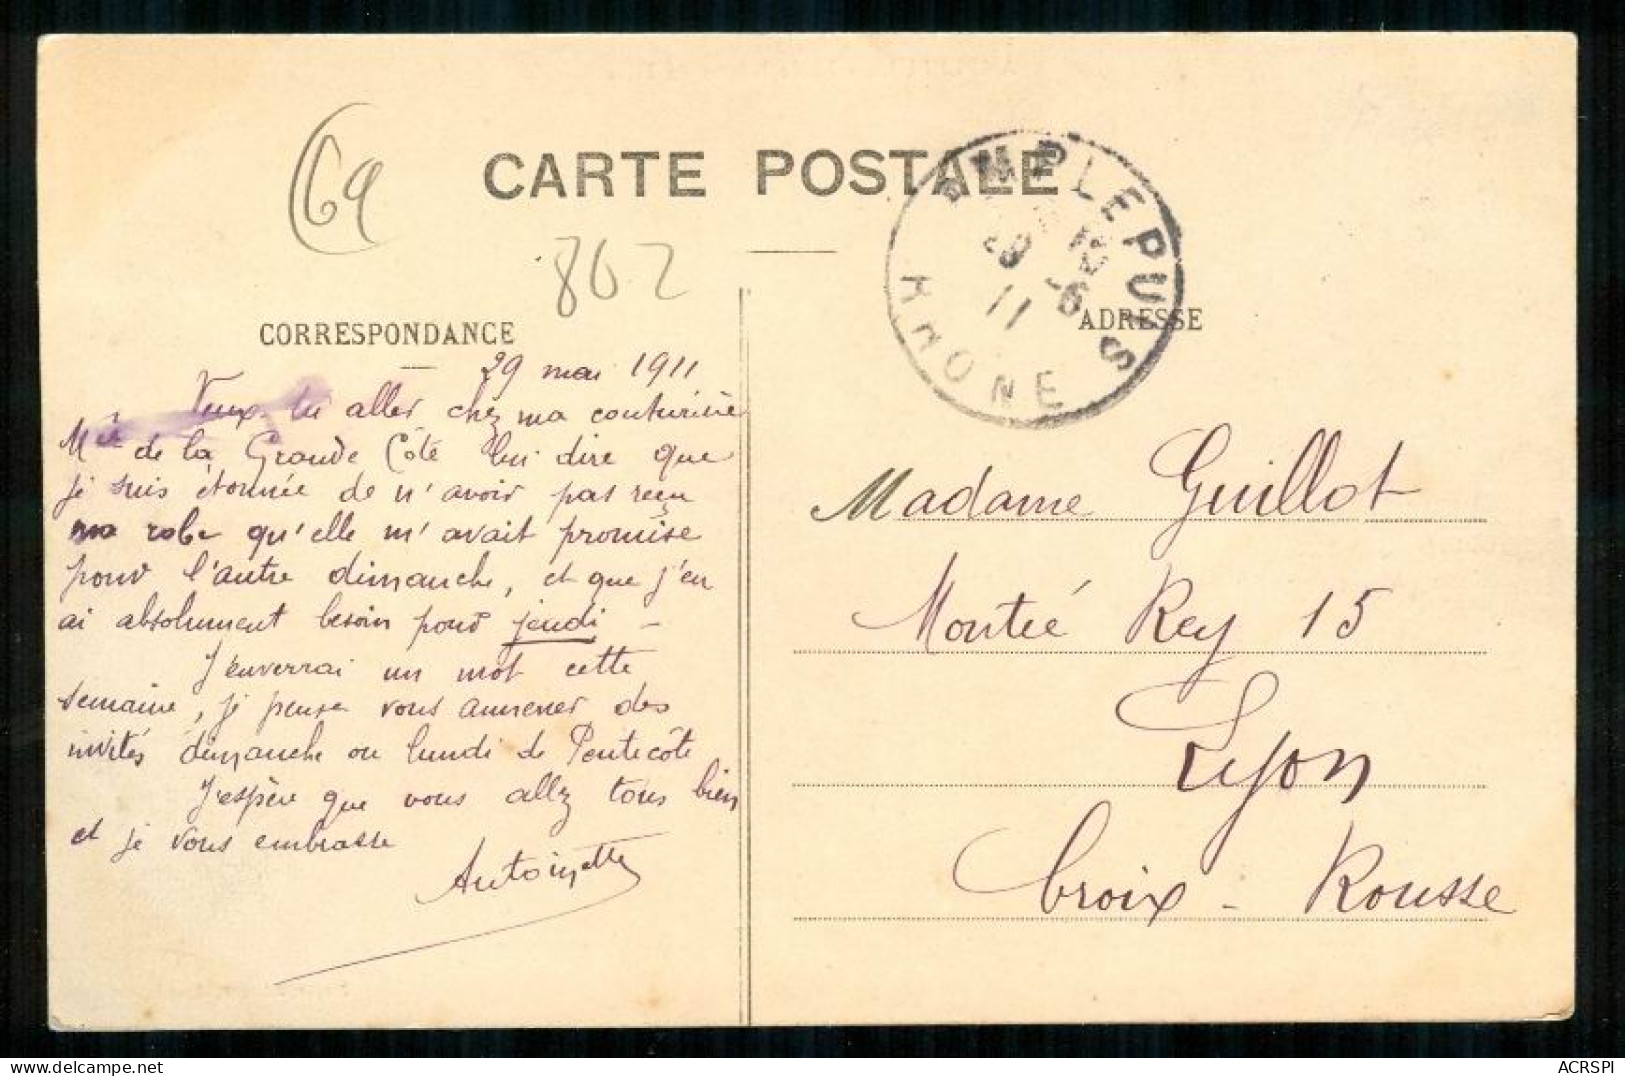 CARTE POSTALE
69
862
AMPLEPUIS
29 -5
11
RHONE
CORRESPONDANCE
ADRESSE
29 mai 1911
Veux-tu aller chez ma couturière
de la Grande Côte lui dire que
je suis étonnée de n'avoir pas reçu
ma robe qu'elle m'avait promise
pour l'autre dimanche, et que j'en
ai absolument besoin pour jeudi -
J'enverrai un mot cette
semaine, je pense vous amener des
invités dimanche ou lundi de Pentecôte
J'espère que vous allez tous bien
et je vous embrasse
Antoinette
Madame Guillot
Montée Rey 15
Lyon
Croix-Rousse
ACRSPI